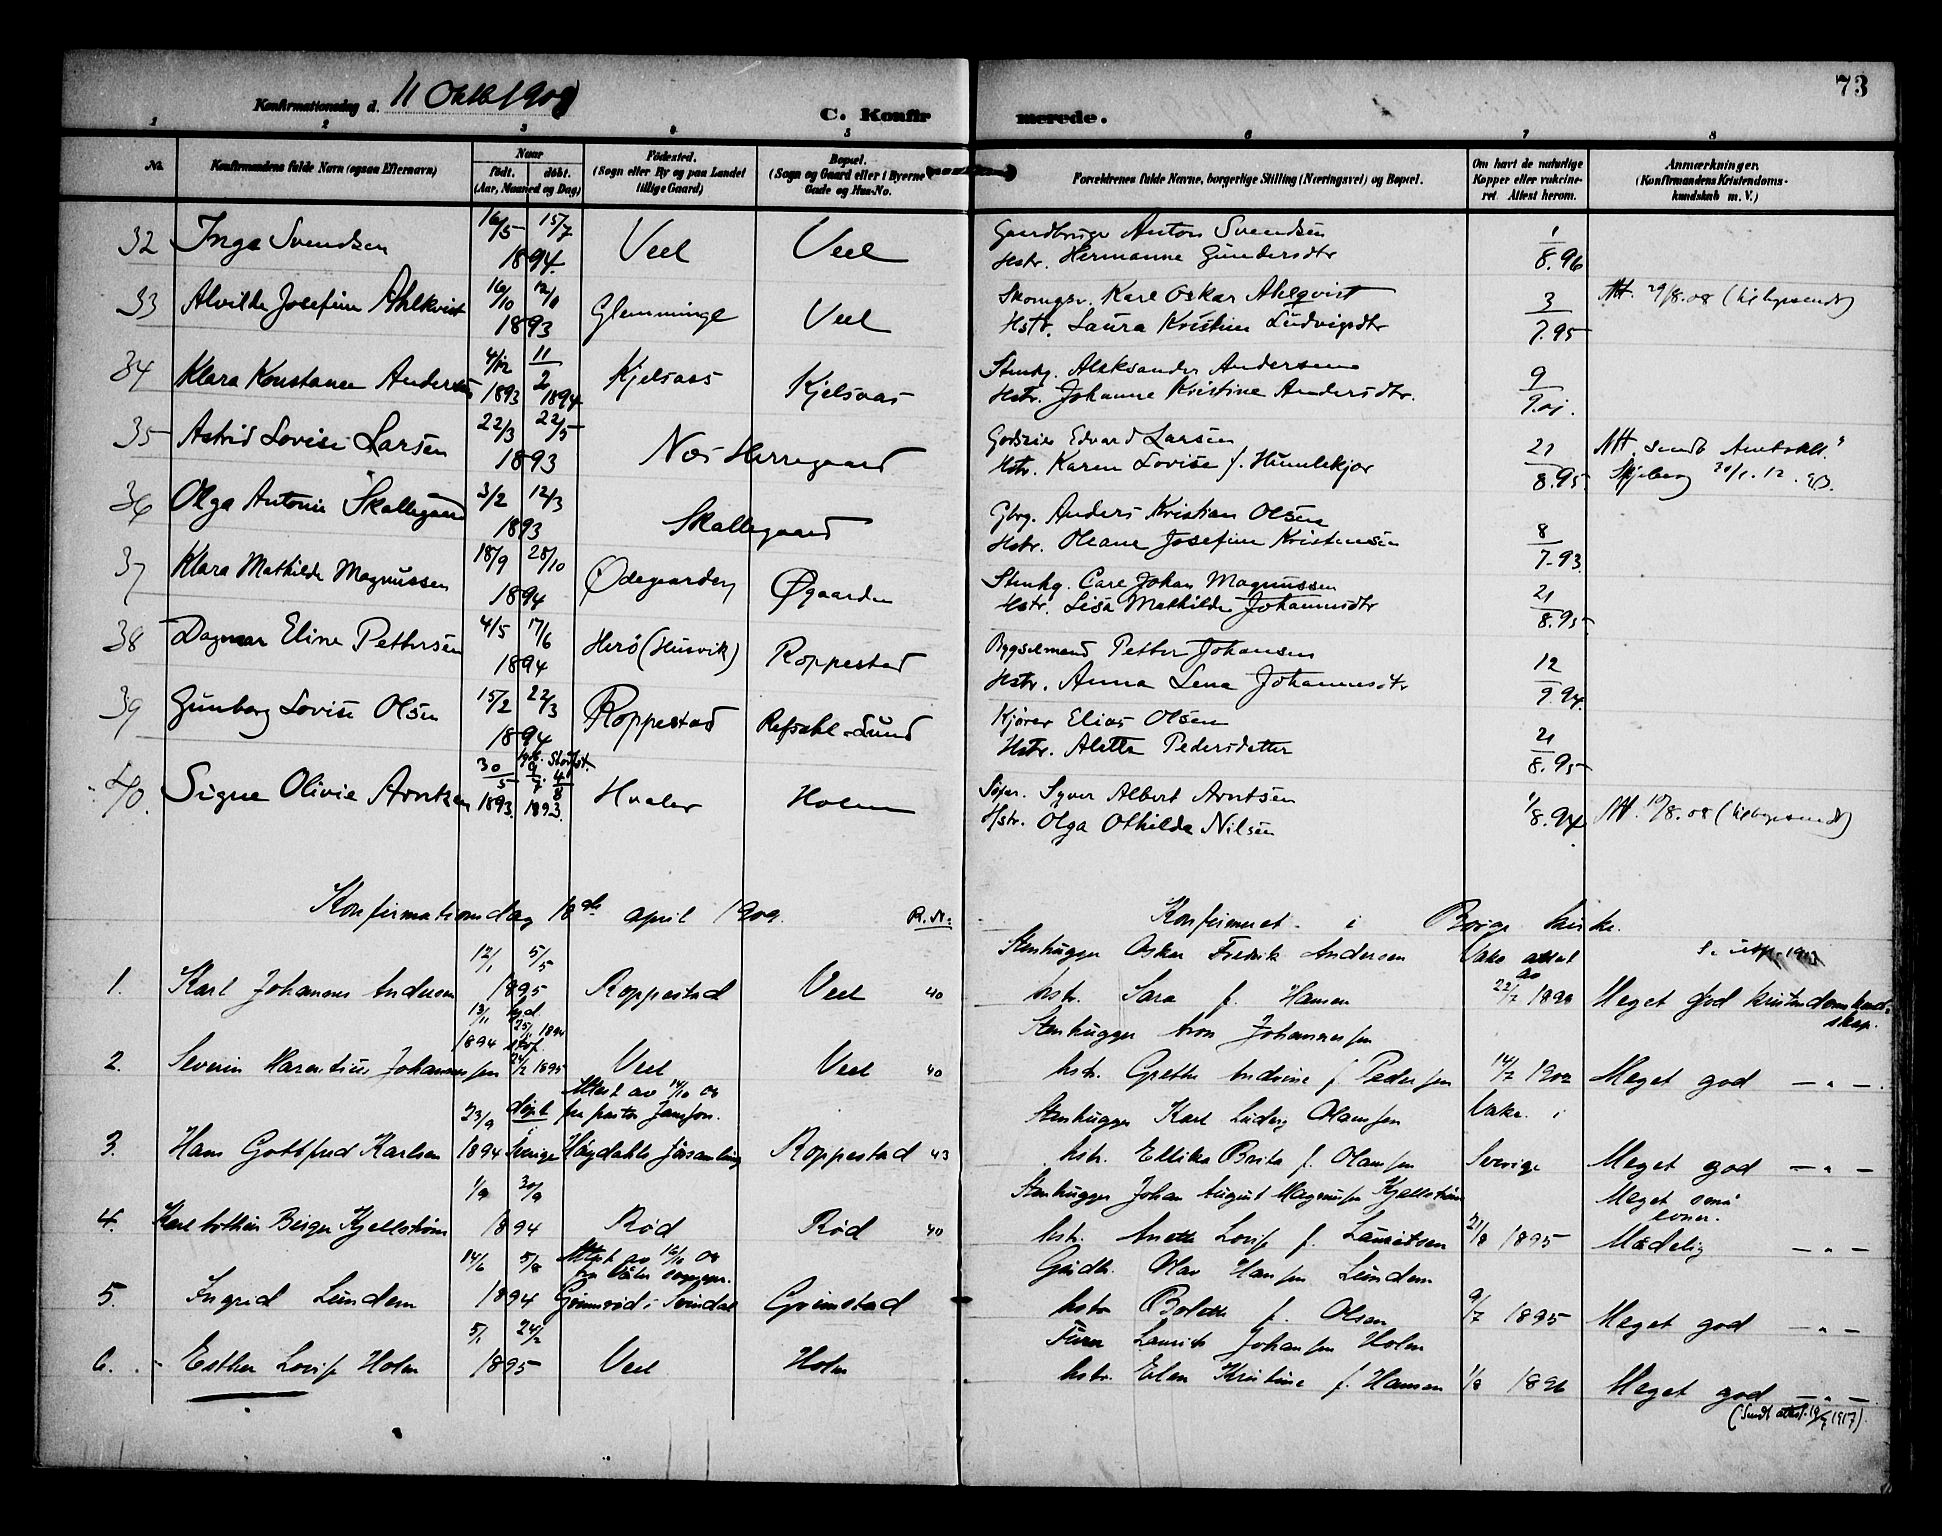 73
Konfirmationsdag d. 11 Oktb 1908
C. Konfirmerede.
1 2 3 4 5 6 7 8
No. Konfirmandens fulde Navn (ogsaa Efternavn) Naar født. døbt. (Aar, Maaned og Dag) Fødested. (Sogn eller By og paa Landet tillige Gaard) Bopæl. (Sogn og Gaard eller i Byerne Gade og Hus-No. Forældrenes fulde Navne, borgerlige Stilling (Næringsvei) og Bopæl. Om havt de naturlige Kopper eller vakcineret. Attest herom. Anmærkninger. (Konfirmandens Kristendomskundskab m. V.)
32 Inga Svendsen 16/5 15/7 1894 Veel Veel Gaardbruger Anton Svendsen 1/8.96
Hstr. Hermanne Gundersdtr
33 Alvilde Josefine Ahlkvist 16/10 12/11 1893 Glemminge Veel Skomgsv. Karl Oskar Ahlqvist 3/7.95 Att. 29/8.08 (tilbagesendt)
Hstr. Laura Kristine Ludvigsdtr
34 Klara Konstance Andersen 4/12 1893 11/2 1894 Kjelsaas Kjelsaas Stenhg. Aleksander Andersen 9/9.01.
Hstr. Johanne Kristine Andersdtr.
35 Astrid Lovise Larsen 22/3 22/5 1893 Nes Herregaard Godseier Edvard Larsen 21/8.95 Att. sendt
Hstr. Karen Lovise f. Hunlekjær Skjeberg 30/1.12.
36 Olga Antonie Skallegaard 3/2 12/3 1893 Skallegaard Gbrg. Anders Kristian Olsen 8/7.93
Hstr. Oleane Josefine Kristensen
37 Klara Mathilde Magnussen 18/9 28/10 1894 Ødegaarden Øgaarden Stenhg. Carl Johan Magnussen 21/8.95
Hstr. Lisa Mathilde Johannesdtr
38 Dagmar Eline Pettersen 4/5 17/6 1894 Herø (Husvik) Roppestad Bygselmand Petter Johansen 12/9.94
Hstr. Anna Lena Johannesdtr
39 Gunborg Lovise Olsen 15/2 22/3 1894 Roppestad Refsahl-Lund Kjører Elias Olsen 21/8.95
Hstr. Aletta Pedersdatter
40. Signe Olivie Arntsen 30/5 1893. 9/7. 4/8 1893. Hvaler Holm Sjøm. Syver Albert Arntsen 1/8.94 Att. 10/8.08 (tilbagesendt)
Hstr. Olga Othilde Nilsen
Konfirmationsdag 18de april 1909. R.N: Konfirmeret i Borge kirke.
1. Karl Johannes Andersen 12/1 5/5 1895 Roppestad Veel 40 Stenhugger Oskar Fredrik Andersen Vaks attest av 22/7 1899
hstr. Sara f. Hansen Meget god kristendomskundskap.
2. Severin Marentius Johannessen 13/11 1894 25/11 1894 24/2 1895 Veel Veel 40 Stenhugger Aron Johannessen
hstr. Grethe Andrine f Pedersen 14/7 1902 Meget god — " —.
3. Hans Gottfred Karlsen 23/9 1894 døpt i Sverige Attest av 14/10 08 fra pastor Høgdahls församling Roppestad 43 Stenhugger Karl Ludvig Olaussen Vaks. i
hstr. Ellika Brita f. Olaussen Sverige Meget god — " —
4. Karl Birger Kjellstrøm 1/9 30/9 1894 Rød Rød 40 Stenhugger Johan August Magnussen Kjellstrøm Meget smaa evner.
hstr. Anette Lovise f. Lauritsen 21/8 1895 Mådelig — " —
5. Ingrid Lunden 14/6 5/8 1894 Attest av 12/10 08 fra Våler sogn. Grimsrød i Svindal Grimstad Gårdbr. Olav Hansen Lunden
hstr Bolette f. Olsen 9/7 1895 Meget god — " —
6. Esther Lovise Holm 5/1 24/2 1895 Veel Holm Laurits Johansen Holm
hstr. Elen Kristine f. Hansen 1/8 1896 Meget god — " —
(Sendt attest 19/7 1917).